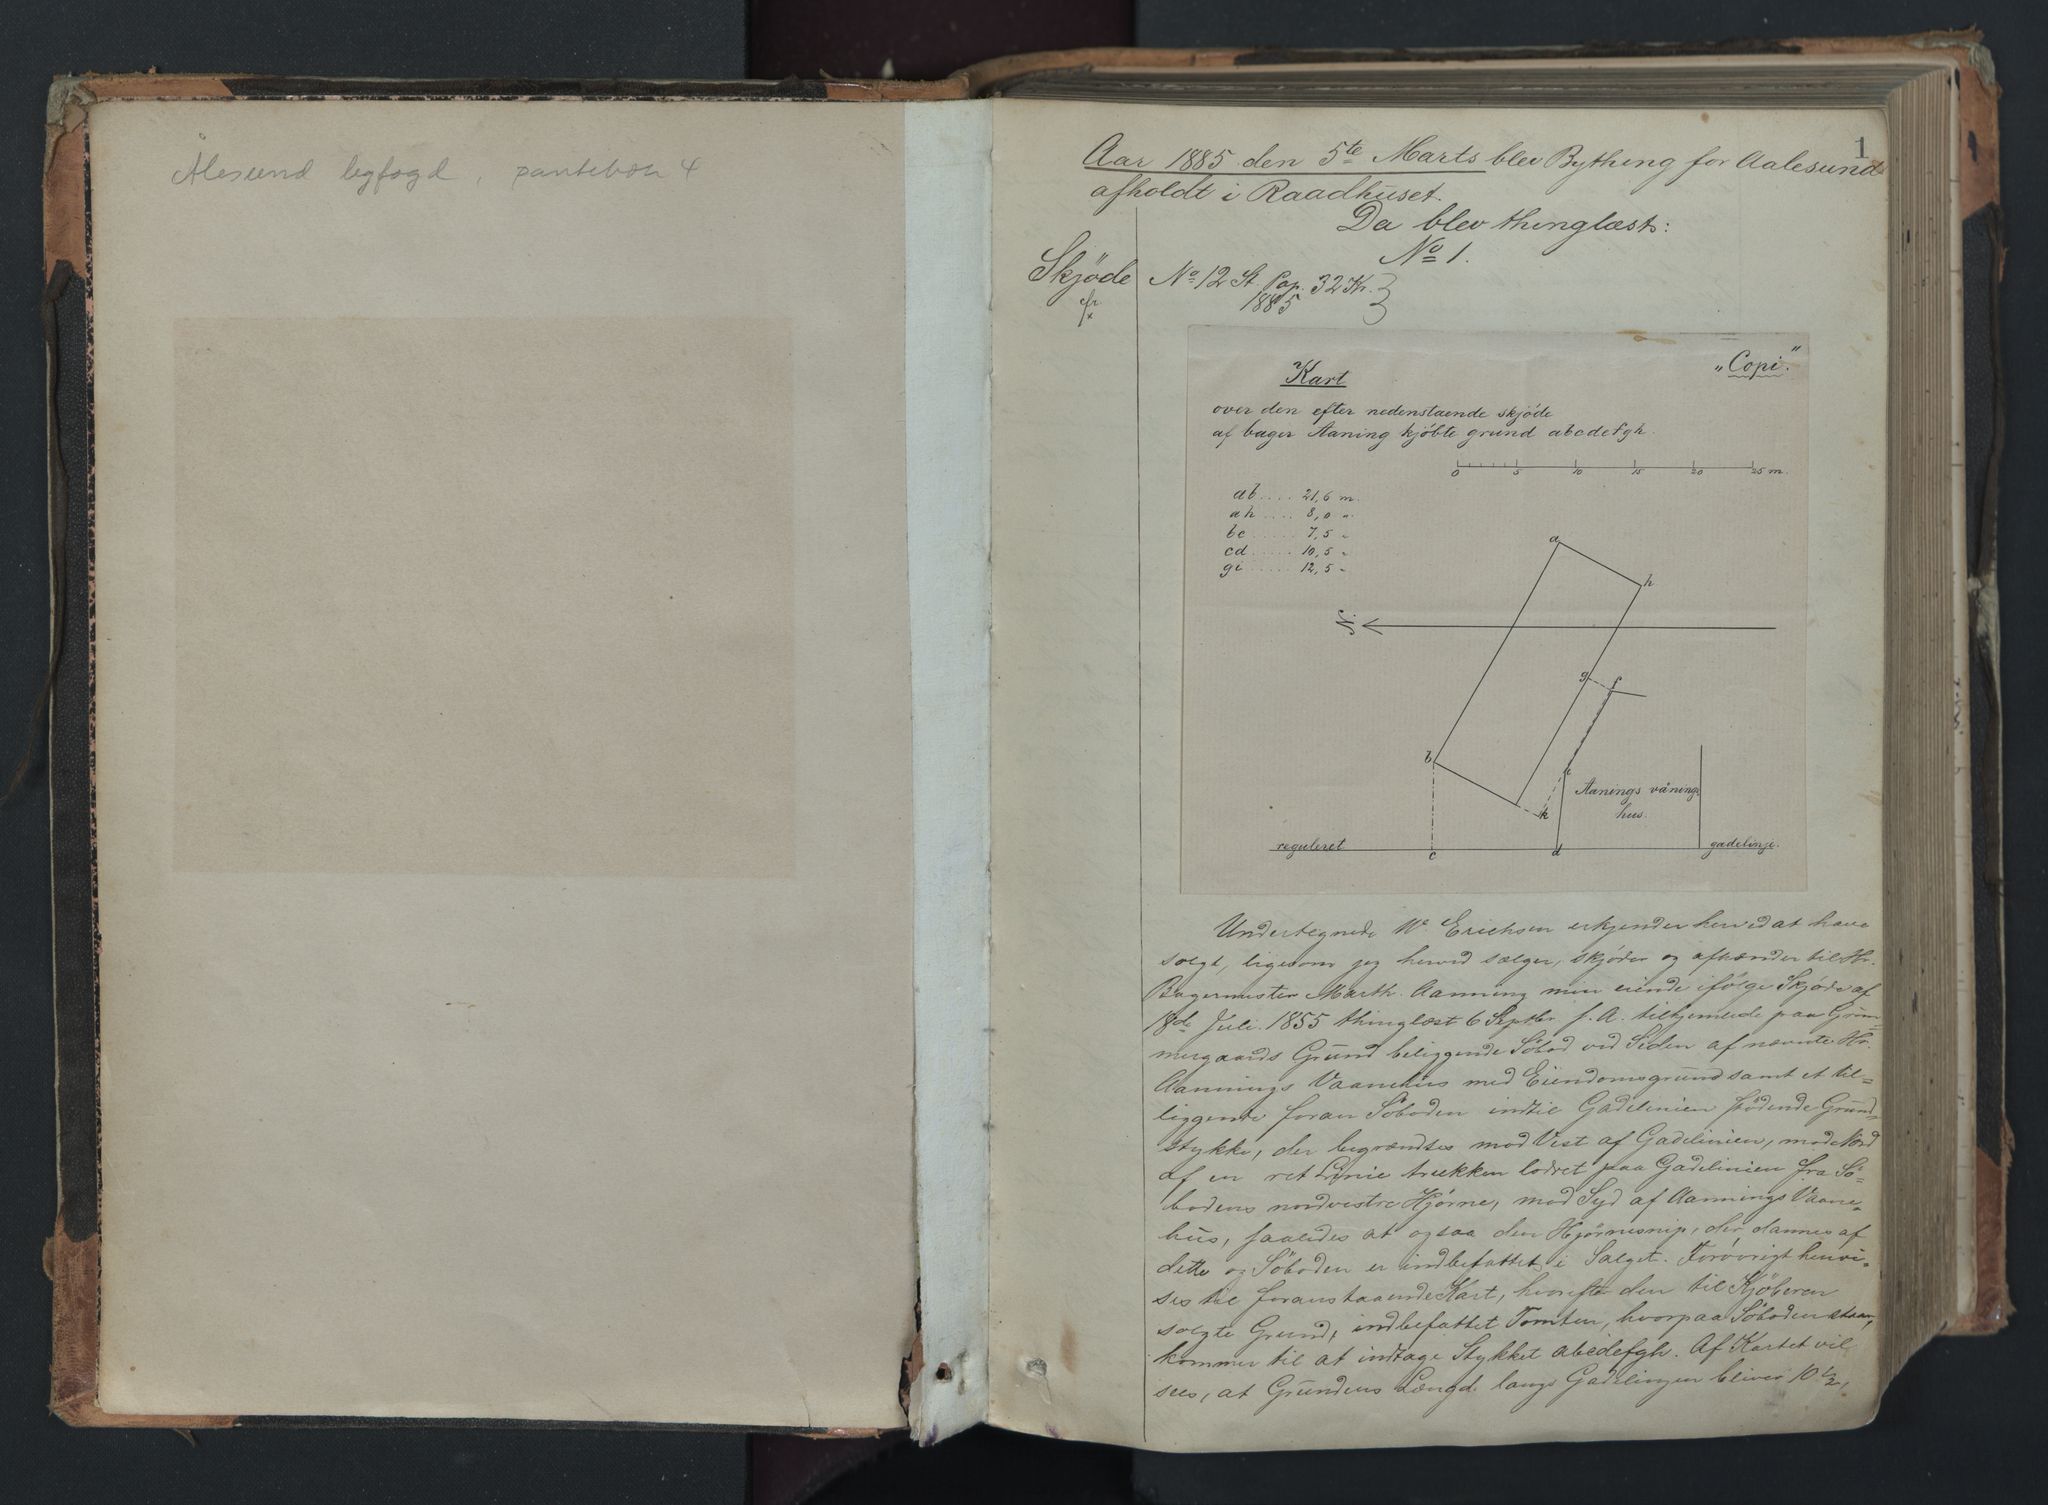 Ålesund byfogd, pantebok 4
1
Aar 1885 den 5te Marts blev Bything for Aalesund
afholdt i Raadhuset.
Da blev thinglæst:
No 1.
Skjöde
cfr
x
No 12 St. Pap. 32 Kr.
1885
"Copi."
Kart
over den efter nedenstaende skjöde
af bager Aaning kjöbte grund abcdefgh.
0 5 10 15 20 25 m.
ab .... 21,6 m.
ah .... 8,0 "
bc ..... 7,5 "
cd ..... 10,5 "
gi ..... 12,5 "
a
h
N
g
f
b
Aanings vånings
hus.
k
reguleret
c
d
gadelinje.
Undertegnede W. Erichsen erkjender herved at have
solgt, ligesom jeg herved sælger, skjöder og afhænder til Hr.
Bagermester Marth. Aanning min eiende ifölge Skjöde af
18de Juli 1855 thinglæst 6 Septbr. f. A. tilhjemlede paa Grim-
mergaards Grund beliggende Söbod ved Siden af nævnte Hr.
Aannings Vaanehus med Eiendomsgrund samt et til-
liggende foran Söboden indtil Gadelinien stödende Grund-
stykke, der begrændses mod Vest af Gadelinien, mod Nord
af en ret Linie trukken lodret paa Gadelinien fra Sö-
bodens nordvestre Hjörne, mod Syd af Aannings Vaane-
hus, saaledes at ogsaa den Hjörnesnip, der dannes af
dette og Söboden er indbefattet i Salget. Forövrigt henvi-
ses til foranstaaende Kart, hvorefter den til Kjöberen
solgte Grund, indbefattet Tomten, hvorpaa Söboden staar,
kommer til at indtage Stykket abcdefgh. Af Kartet vil
sees, at Grundens Længde langs Gadelinjen bliver 10 1/2,